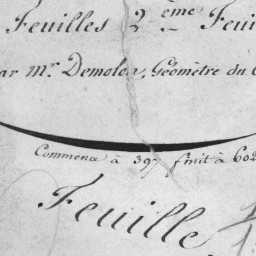 Feuilles 2 ème Feui
ar Mr. Demolon, Géomètre du
Commence à 397 finit à 602
Feuille